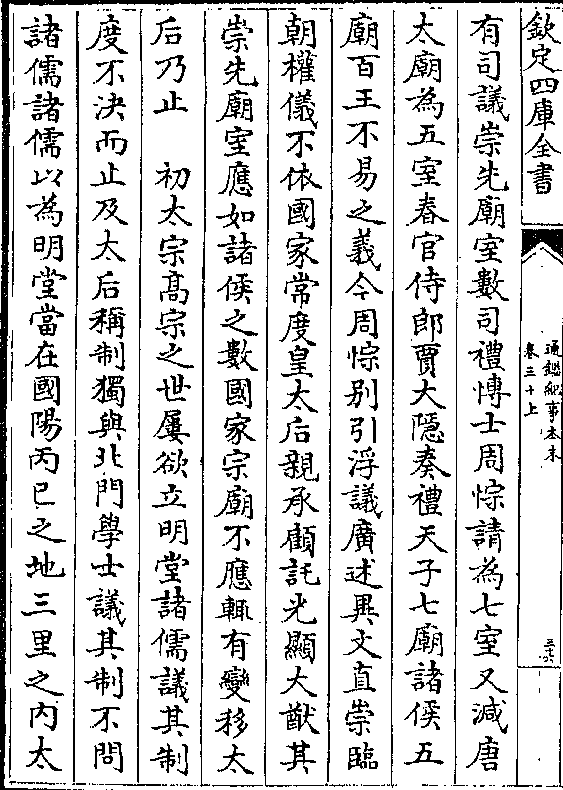 欽定四庫全書
通鑑紀事本末
卷三十上
有司議崇先廟室數司禮博士周悰請為七室又減唐
太廟為五室春官侍郎賈大隱奏禮天子七廟諸侯五
廟百王不易之義今周悰别引浮議廣述異文直崇臨
朝權儀不依國家常度皇太后親承顧託光顯大猷其
崇先廟室應如諸侯之數國家宗廟不應輒有變移太
后乃止　初太宗髙宗之世屢欲立明堂諸儒議其制
度不決而止及太后稱制獨與北門學士議其制不問
諸儒諸儒以為明堂當在國陽丙巳之地三里之内太